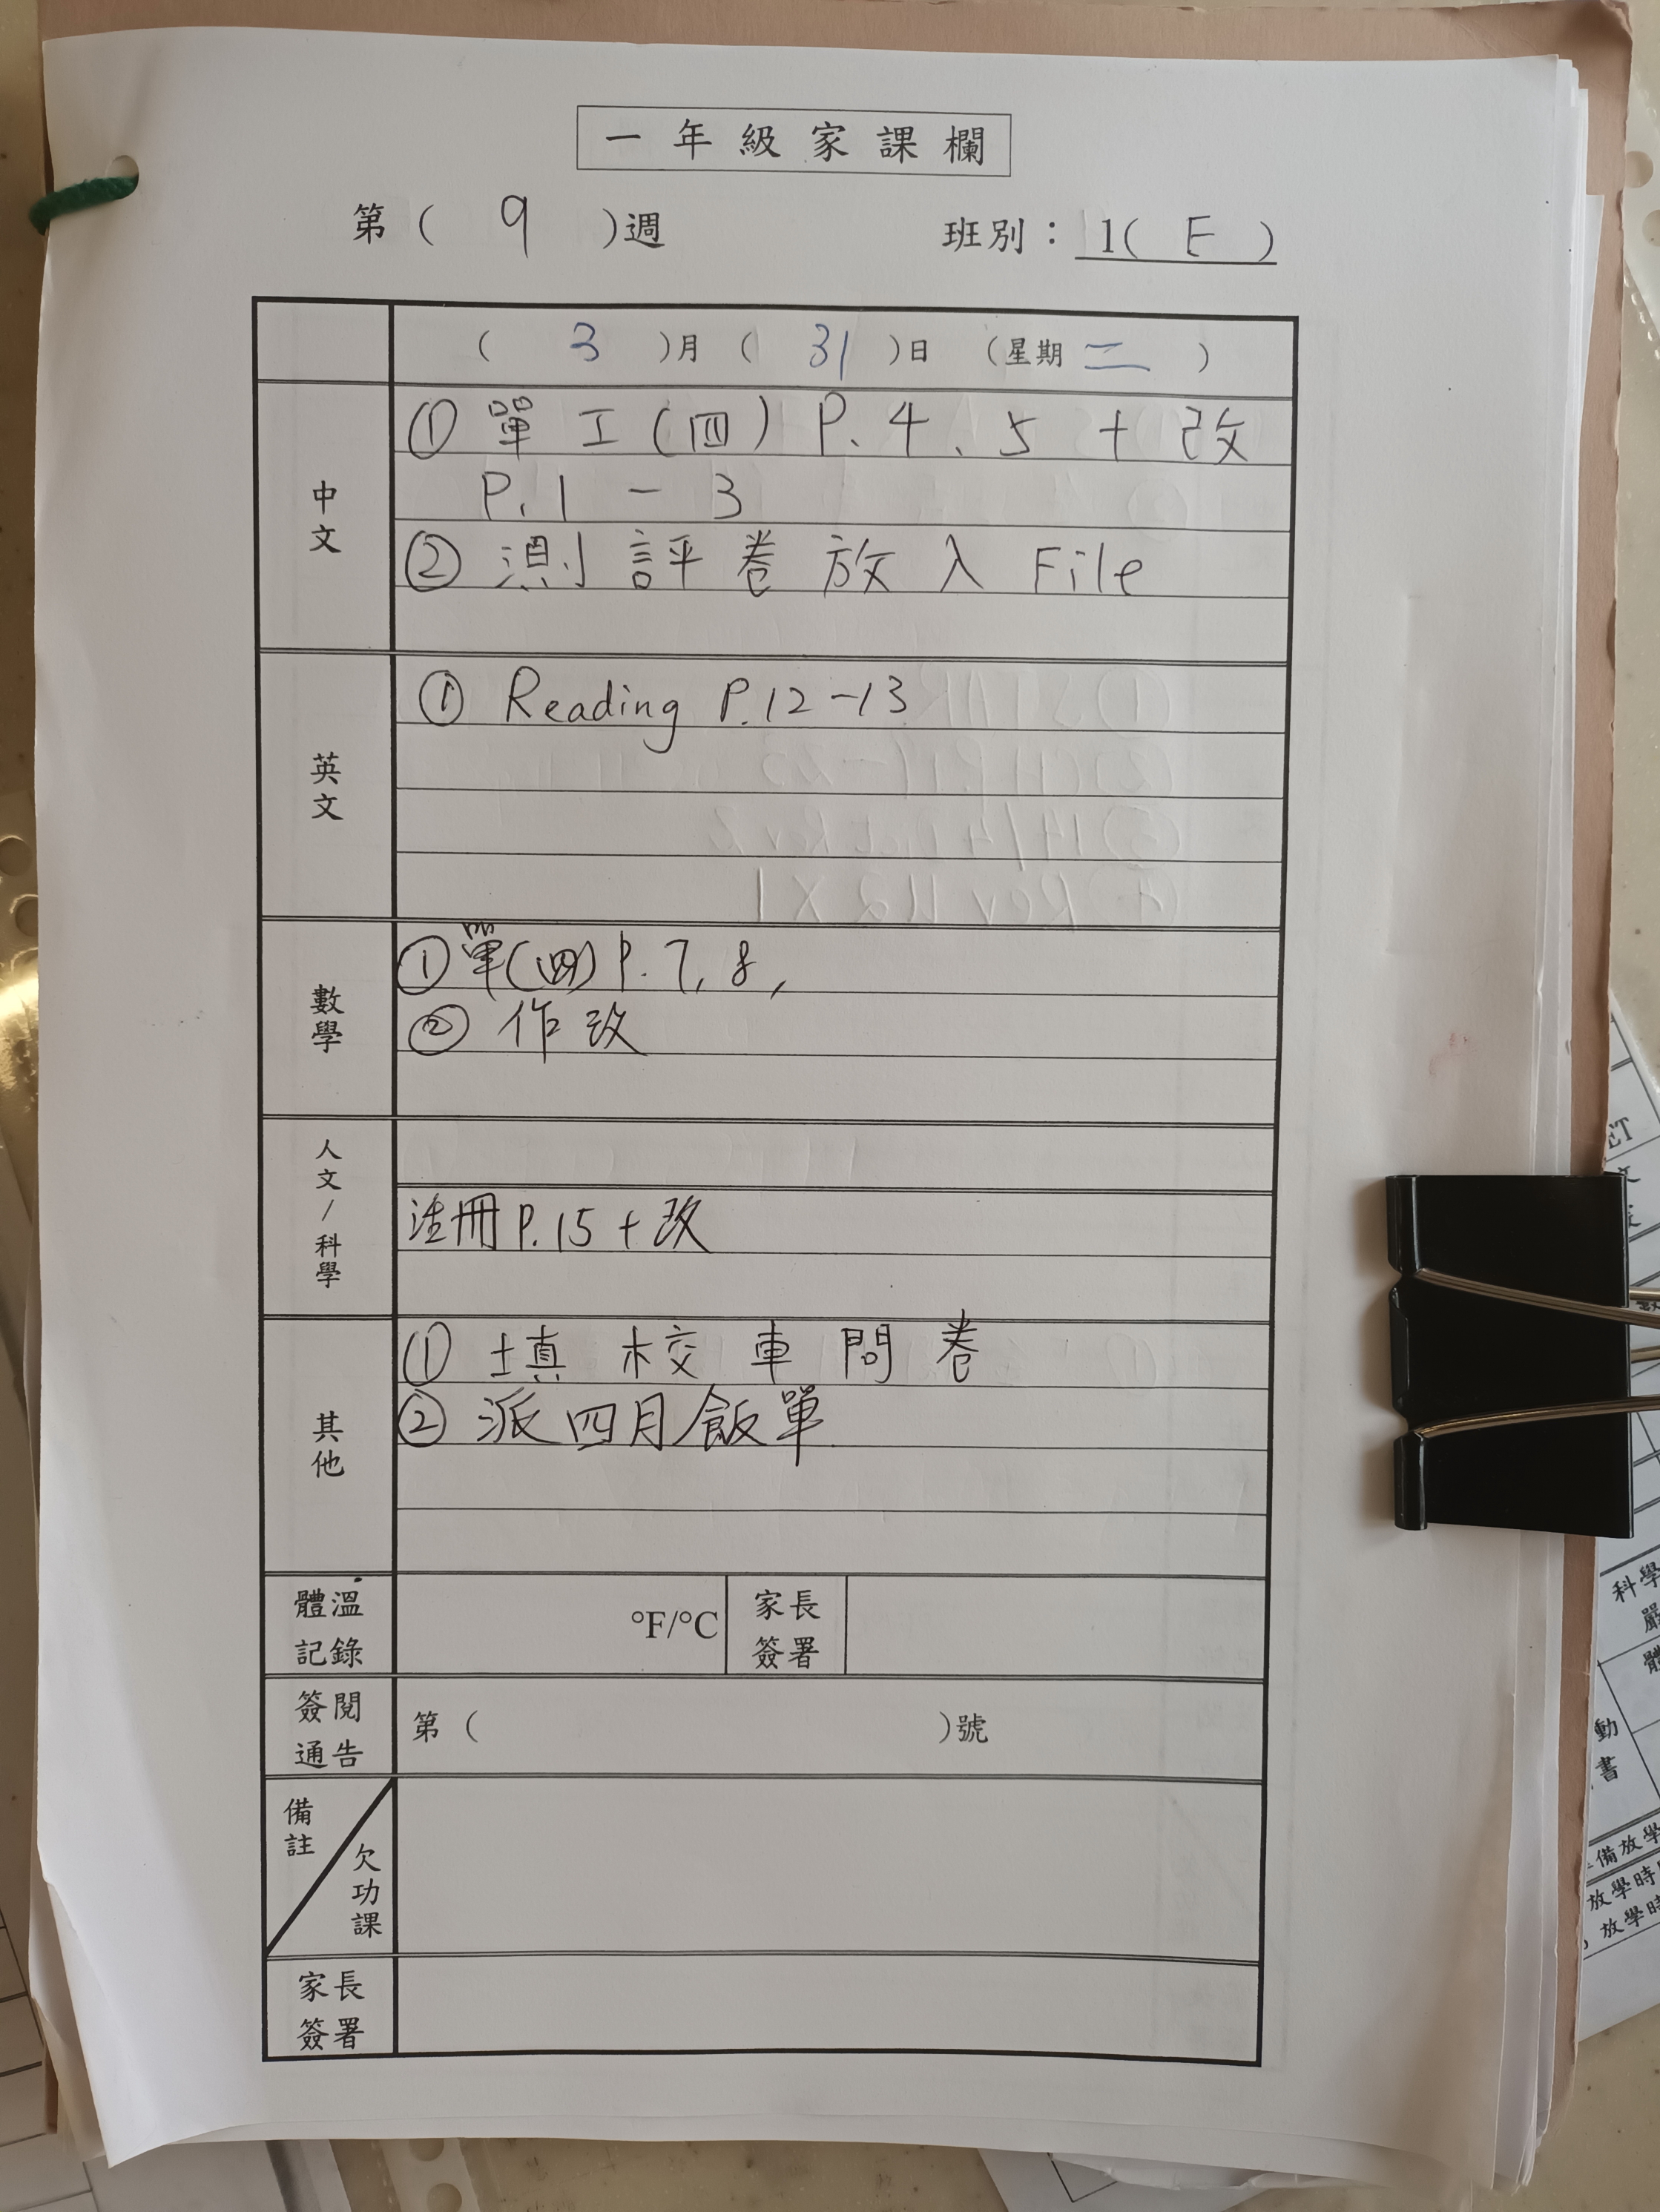 一年級家課欄
第( 9 )週 班別：1( E )
( 3 )月( 31 )日 (星期二 )
中文
① 單工(四) P.4、5 + 改
P.1 - 3
② 測評卷放入File
英文
① Reading P.12-13
數學
① 單(四) P.7, 8,
② 作改
人文/科學
活冊 P.15 + 改
其他
① 填校車問卷
② 派四月飯單
體溫記錄 °F/°C 家長簽署
簽閱通告 第( )號
備註 欠功課
家長簽署
ET
科學
動
書
備放學
放學時
放學時